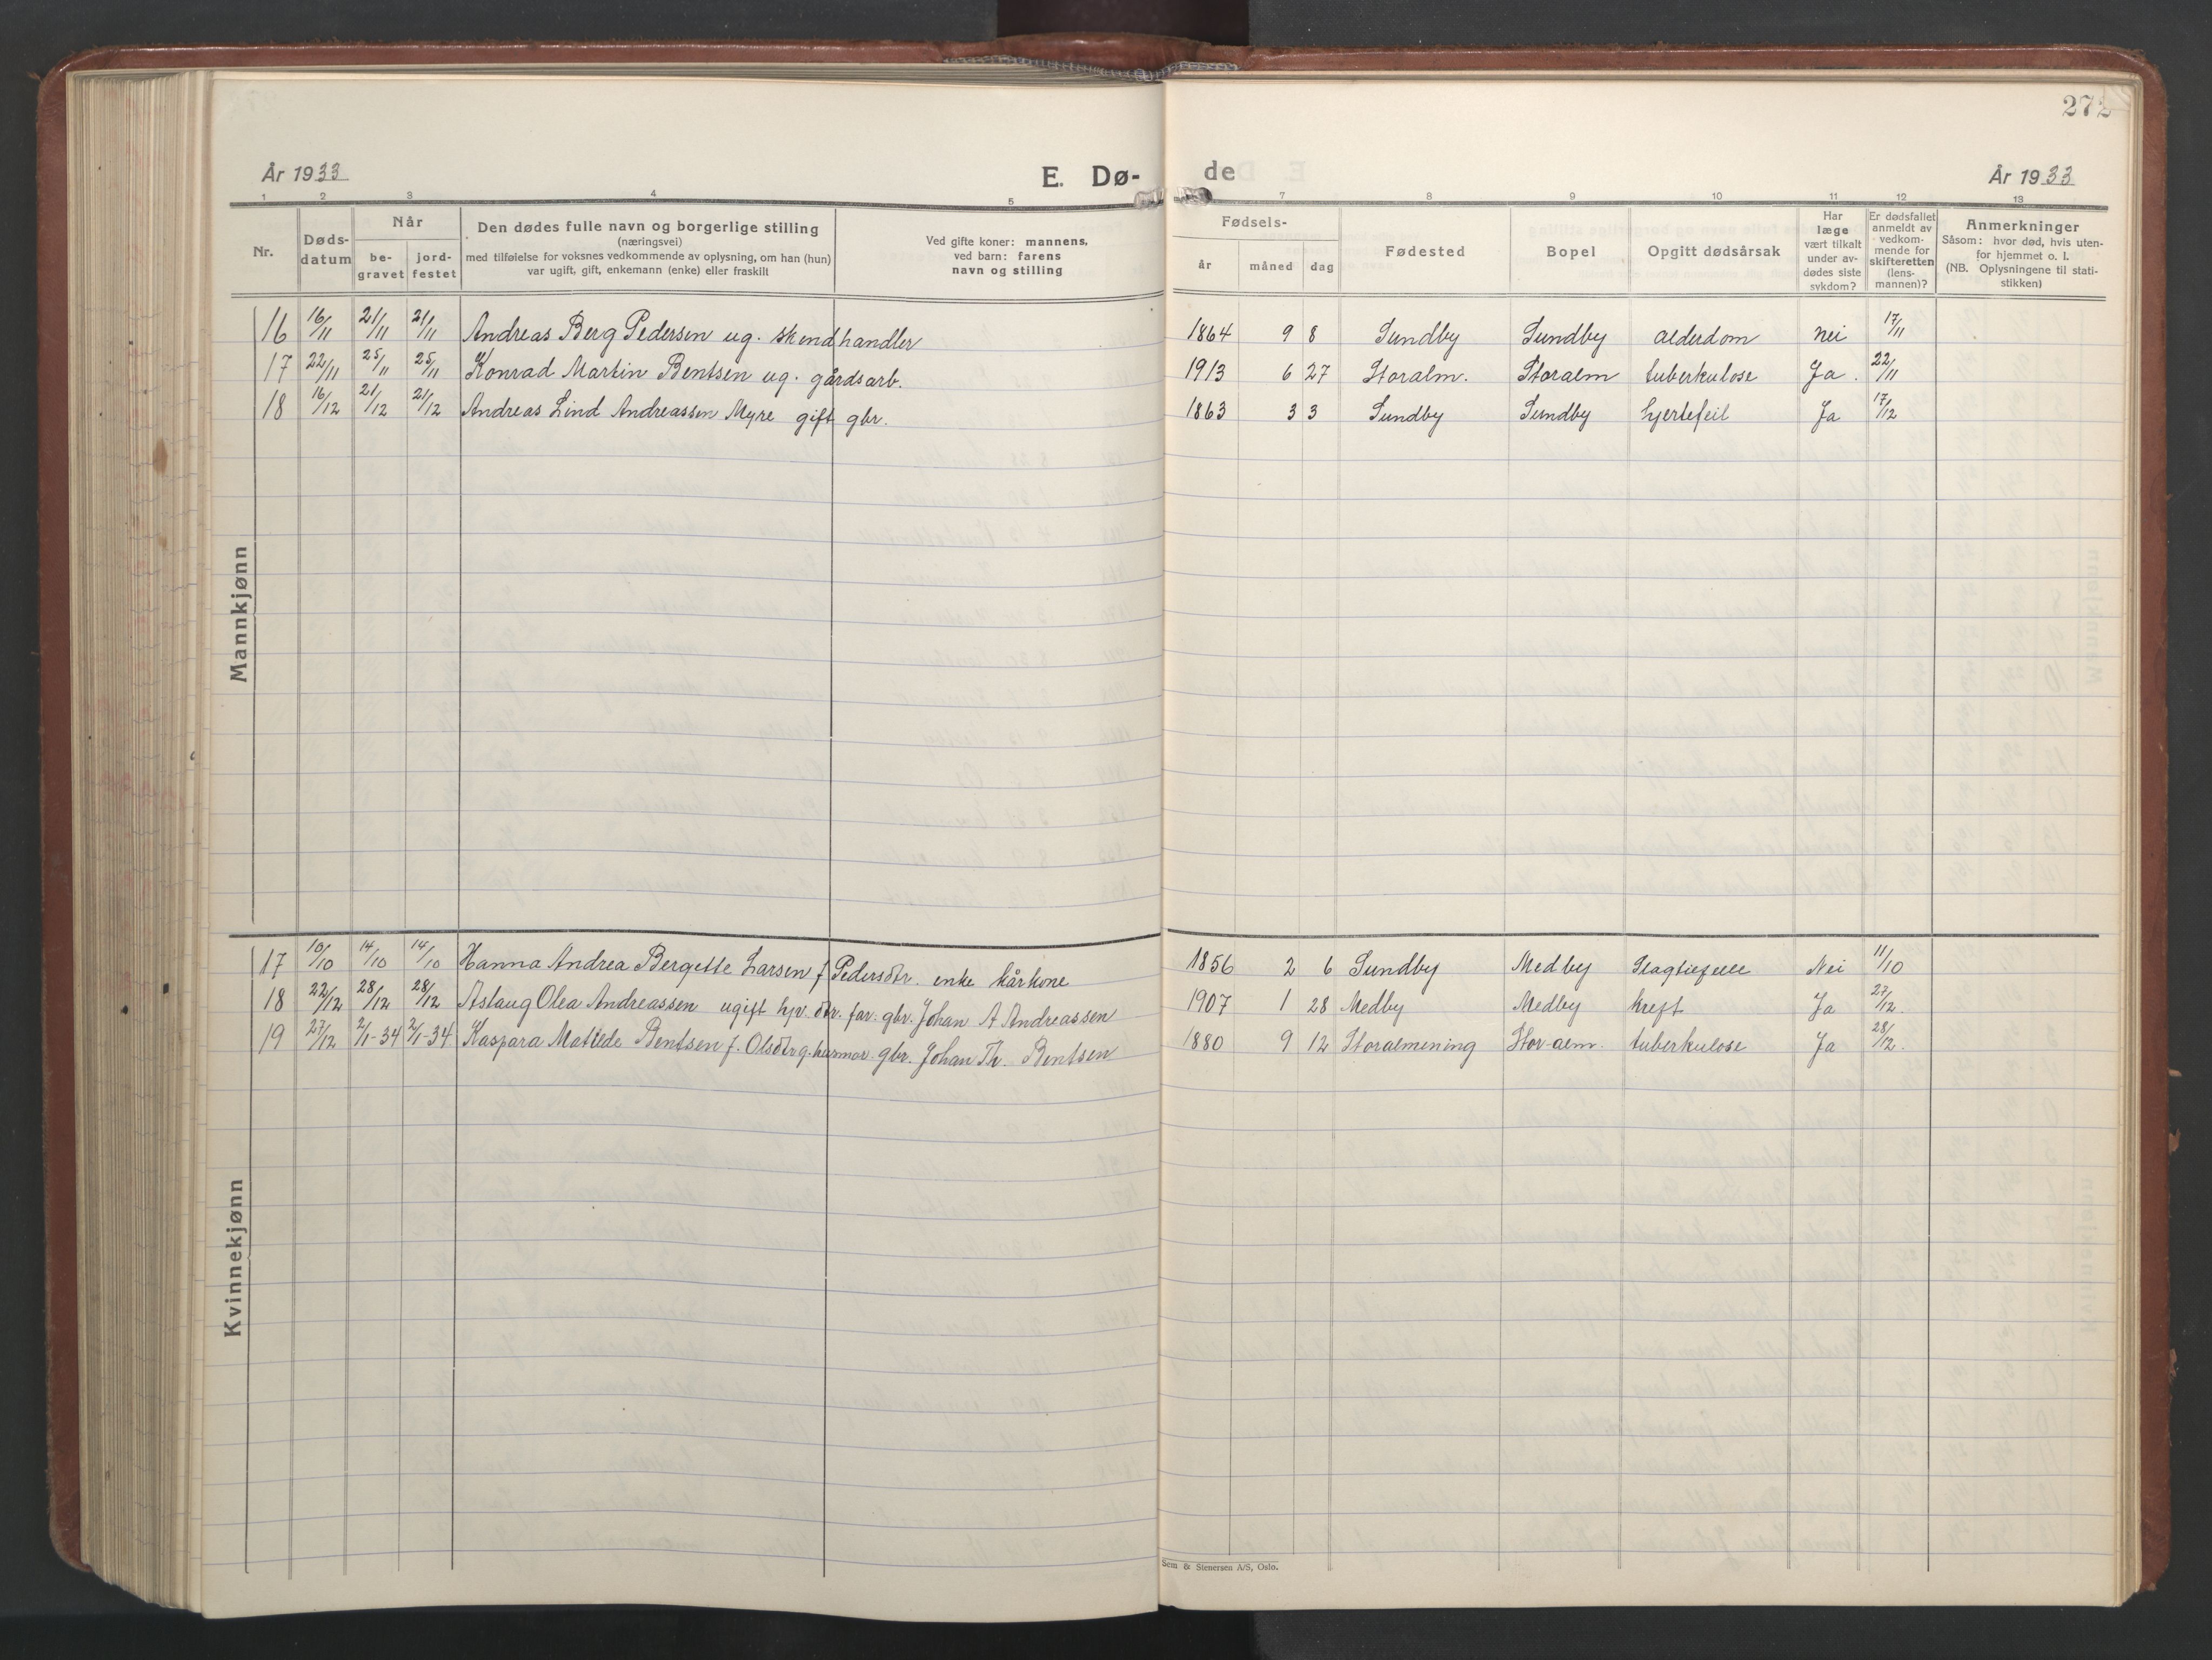 272
År 1933 E. Dø- de År 1933
1 2 3 4 5 7 8 9 10 11 12 13
Nr. Døds-datum Når be-gravet jord-festet Den dødes fulle navn og borgerlige stilling (næringsvei) med tilføielse for voksnes vedkommende av oplysning, om han (hun) var ugift, gift, enkemann (enke) eller fraskilt Ved gifte koner: mannens, ved barn: farens navn og stilling Fødsels- år måned dag Fødested Bopel Opgitt dødsårsak Har læge vært tilkalt under av-dødes siste sykdom? Er dødsfallet anmeldt av vedkom-mende for skifteretten (lens-mannen)? Anmerkninger Såsom: hvor død, hvis uten-for hjemmet o. l. (NB. Oplysningene til stati-stikken)
Mannkjønn
16 16/11 21/11 21/11 Andreas Berg Pedersen ug. skindhandler 1864 9 8 Sundby Sundby alderdom nei 17/11
17 22/11 25/11 25/11 Konrad Martin Bentsen ug. gårdsarb. 1913 6 27 Storalm. Storalm tuberkulose Ja. 22/11
18 16/12 21/12 21/12 Andreas Lind Andreassen Myre gift gbr. 1863 3 3 Sundby Sundby hjertefeil Ja 17/12
Kvinnekjønn
17 10/10 14/10 14/10 Hanna Andrea Bergette Larsen f. Pedersdtr. enke kårkone 1856 2 6 Sundby Medby Slagtilfelle Nei 11/10
18 22/12 28/12 28/12 Aslaug Olea Andreassen ugift hjv. dtr. far: gbr. Johan A Andreassen 1907 1 28 Medby Medby kreft Ja 27/12.
19 27/12 2/1-34 2/1-34 Kaspara Matilde Bentsen f. Olsdtr g. husmor gbr. Johan Th. Bentsen 1880 9 12 Storalmening Stor-alm. tuberkulose Ja 28/12.
Sem & Stenersen A/S, Oslo.